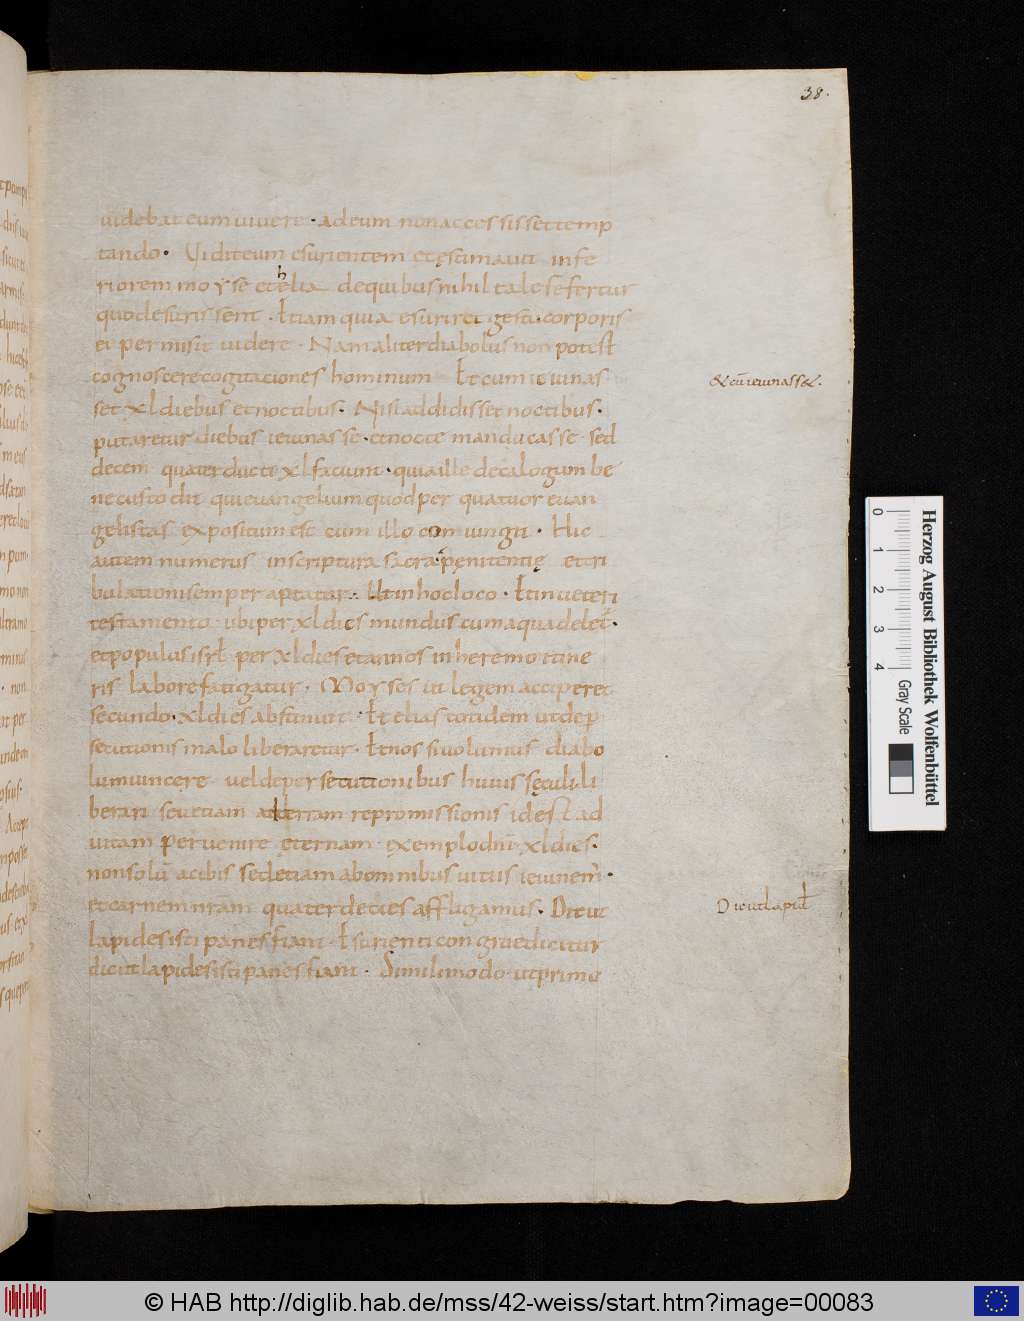 38.
uidebat eum uiuere · ad eum non accessisset temp
tando · Vidit eum esurientem et ęstimauit infe
riorem moyse et helia de quibus nihil tale refertur
quod esurissent · Etiam quia esuriret gestu corporis
ei permisit uidere · Nam aliter diabolus non potest
cognoscere cogitationes hominum Et cum ieiunas
set xl diebus et noctibus · Nisi addidisset noctibus ·
putaretur diebus ieiunasse · et nocte manducasse sed
decem quater ducte xl faciunt · quia ille decalogum be
ne custodit qui euangelium quod per quatuor euan
gelistas expositum est cum illo coniungit · Hic
autem numerus in scriptura sacra penitentię et tri
bulationi semper aptatur · Ut in hoc loco · Et in ueteri
testamento · ubi per xl dies mundus cum aqua delet̄ ·
et populus isrl per xl dies et annos in heremo itine
ris labore fatigatur · Moyses ut legem acciperet
secundo · xl dies abstinuit · Et elias totidem ut de p̄
secutionis malo liberaretur · Et nos si uolumus diabo
lum uincere uel de persecutionibus huius sęculi li
berari seu etiam ad terram repromissionis id est ad
uitam peruenire ęternam · exemplo dn̄i xl dies ·
non solū a cibis sed etiam ab omnibus uitiis ieiunem̄ ·
et carnem nram quater decies affligamus · Dic ut
lapides isti panes fiant · Esurienti congrue dicitur
dic ut lapides isti panes fiant · Simili modo · ut primū
& cū ieiunass& ·
Dic ut lapid
0 1 2 3 4
Herzog August Bibliothek Wolfenbüttel
Gray Scale
© HAB http://diglib.hab.de/mss/42-weiss/start.htm?image=00083